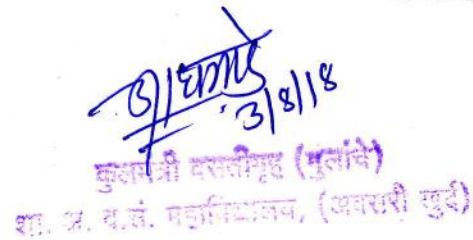 3/8/18
कुलमंत्री वसतीगृह (मुलांचे)
शा. अ. व.तं. महाविद्यालय, (अवसरी खुर्द)